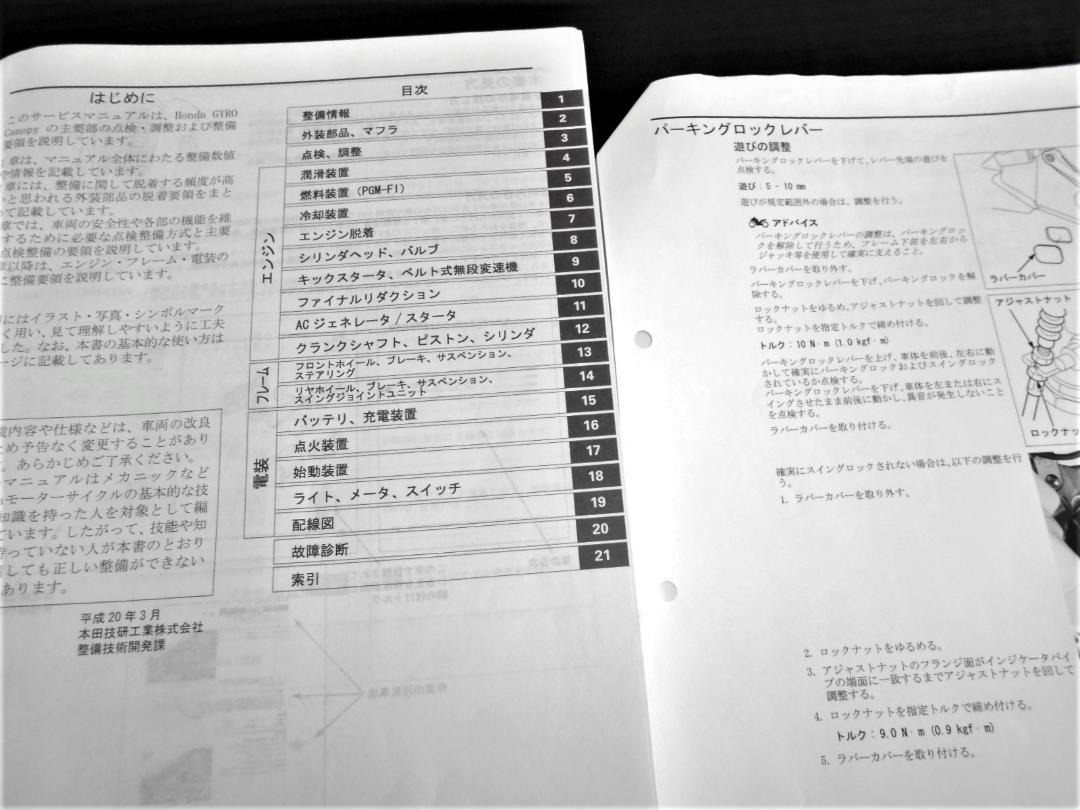 はじめに
このサービスマニュアルは、Honda GYRO
Canopy の主要部の点検・調整および整備
要領を説明しています。
章は、マニュアル全体にわたる整備数値
や情報を記載しています。
章には、整備に関して脱着する頻度が高
いと思われる外装部品の脱着要領をまと
めて記載しています。
章では、車両の安全性や各部の機能を維
するために必要な点検整備方式と主要
点検整備の要領を説明しています。
章以降は、エンジン・フレーム・電装の
に整備要領を説明しています。
にはイラスト・写真・シンボルマーク
く用い、見て理解しやすいように工夫
した。なお、本書の基本的な使い方は
ージに記載してあります。
載内容や仕様などは、車両の改良
ため予告なく変更することがあり
。あらかじめご了承ください。
マニュアルはメカニックなど
aモーターサイクルの基本的な技
知識を持った人を対象として編
ています。したがって、技能や知
持っていない人が本書のとおり
しても正しい整備ができない
あります。
平成20年3月
本田技研工業株式会社
整備技術開発課
目次
整備情報 1
外装部品、マフラ 2
点検、調整 3
エンジン
潤滑装置 4
燃料装置 (PGM-FI) 5
冷却装置 6
エンジン脱着 7
シリンダヘッド、バルブ 8
キックスタータ、ベルト式無段変速機 9
ファイナルリダクション 10
AC ジェネレータ / スタータ 11
クランクシャフト、ピストン、シリンダ 12
フレーム
フロントホイール、ブレーキ、サスペンション、
ステアリング 13
リヤホイール、ブレーキ、サスペンション、
スイングジョイントユニット 14
電装
バッテリ、充電装置 15
点火装置 16
始動装置 17
ライト、メータ、スイッチ 18
配線図 19
故障診断 20
索引 21
パーキングロックレバー
遊びの調整
パーキングロックレバーを下げて、レバー先端の遊びを
点検する。
遊び：5 - 10 mm
遊びが規定範囲外の場合は、調整を行う。
アドバイス
パーキングロックレバーの調整は、パーキングロッ
クを解除して行うため、フレーム下部を左右から
ジャッキ等を使用して確実に支えること。
ラバーカバーを取り外す。
パーキングロックレバーを下げ、パーキングロックを解
除する。
ロックナットをゆるめ、アジャストナットを回して調整
する。
ロックナットを指定トルクで締め付ける。
トルク：10 N・m (1.0 kgf・m)
パーキングロックレバーを上げ、車体を前後、左右に動
かして確実にパーキングロックおよびスイングロック
されているか点検する。
パーキングロックレバーを下げ、車体を左または右にス
イングさせたまま前後に動かし、異音が発生しないこと
を点検する。
ラバーカバーを取り付ける。
確実にスイングロックされない場合は、以下の調整を行
う。
1. ラバーカバーを取り外す。
2. ロックナットをゆるめる。
3. アジャストナットのフランジ面がインジケータパイ
プの端面に一致するまでアジャストナットを回して
調整する。
4. ロックナットを指定トルクで締め付ける。
トルク：9.0 N・m (0.9 kgf・m)
5. ラバーカバーを取り付ける。
ラバーカバー
アジャストナット
ロックナッ